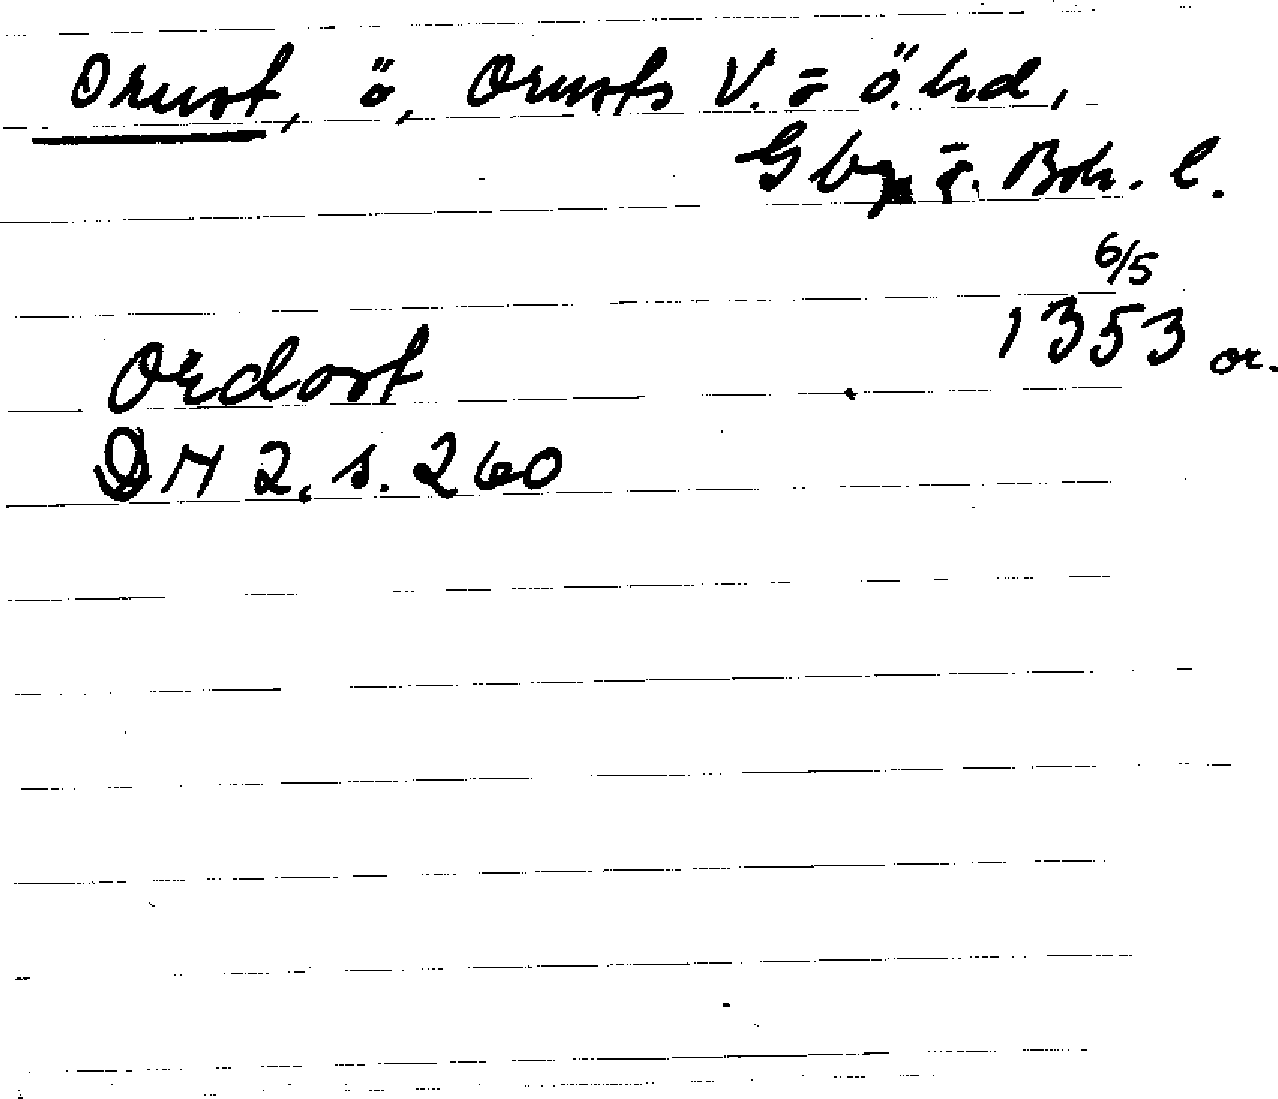 Orust, ö, Orusts V. o. ö. hrd,
Gbg o. Boh. l.
6/5
1353 or.
Ordost
DN 2, s. 260